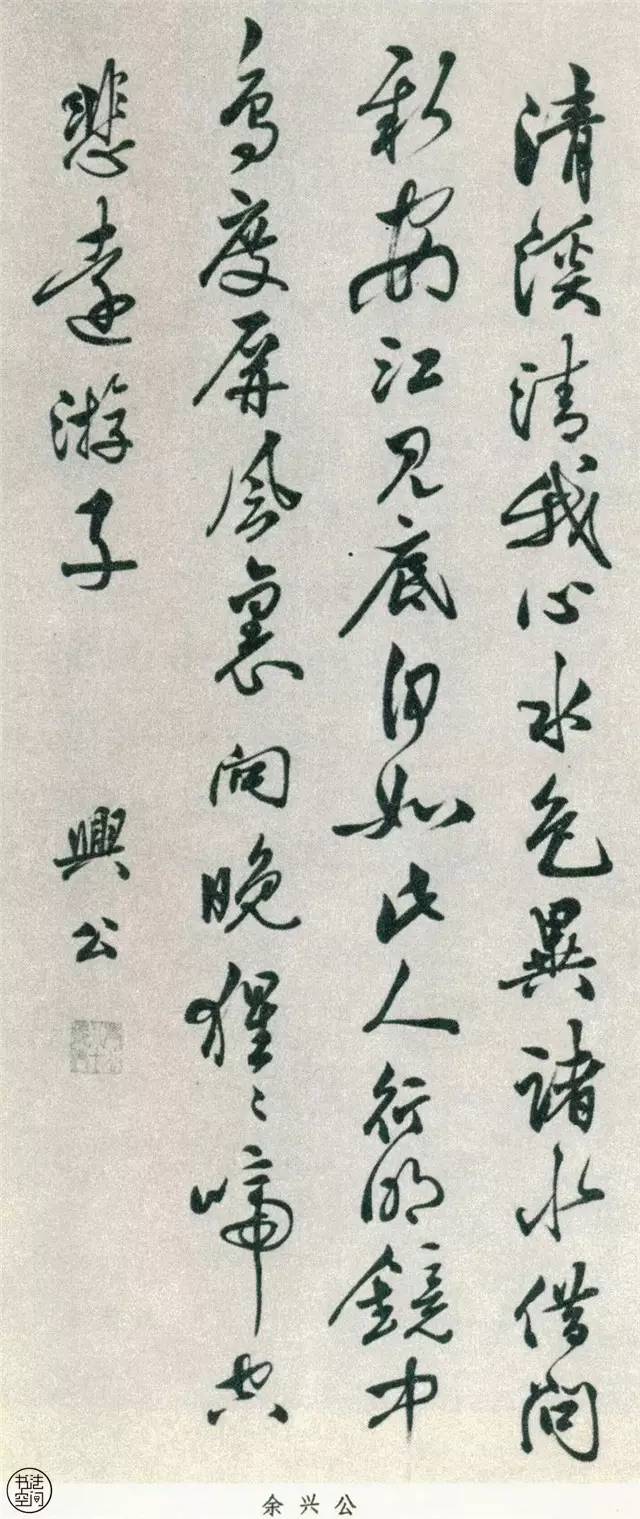 清溪清我心水色異諸水借問
新安江見底何如此人行明鏡中
鳥度屏風裏向晚猩〻啼空
悲遠游子
興公
余兴公
书法
空间